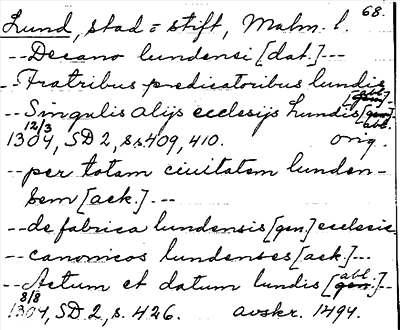 68.
Lund, stad = stift, Malm. l.
-- Decano lundensi [dat.] ---
-- Fratribus predicatoribus lundis [abl.]
-- Singulis alijs ecclesijs Lundis [abl.]
12/3
1304, SD 2, s.s 409, 410. orig.
-- per totam ciuitatem lunden-
sem [ack.] ---
-- de fabrica lundensis [gen.] ecclesie
-- canonicos lundenses [ack.] ---
-- Actum et datum lundis [abl.] --
8/8
1304, SD 2, s. 426. avskr. 1494.